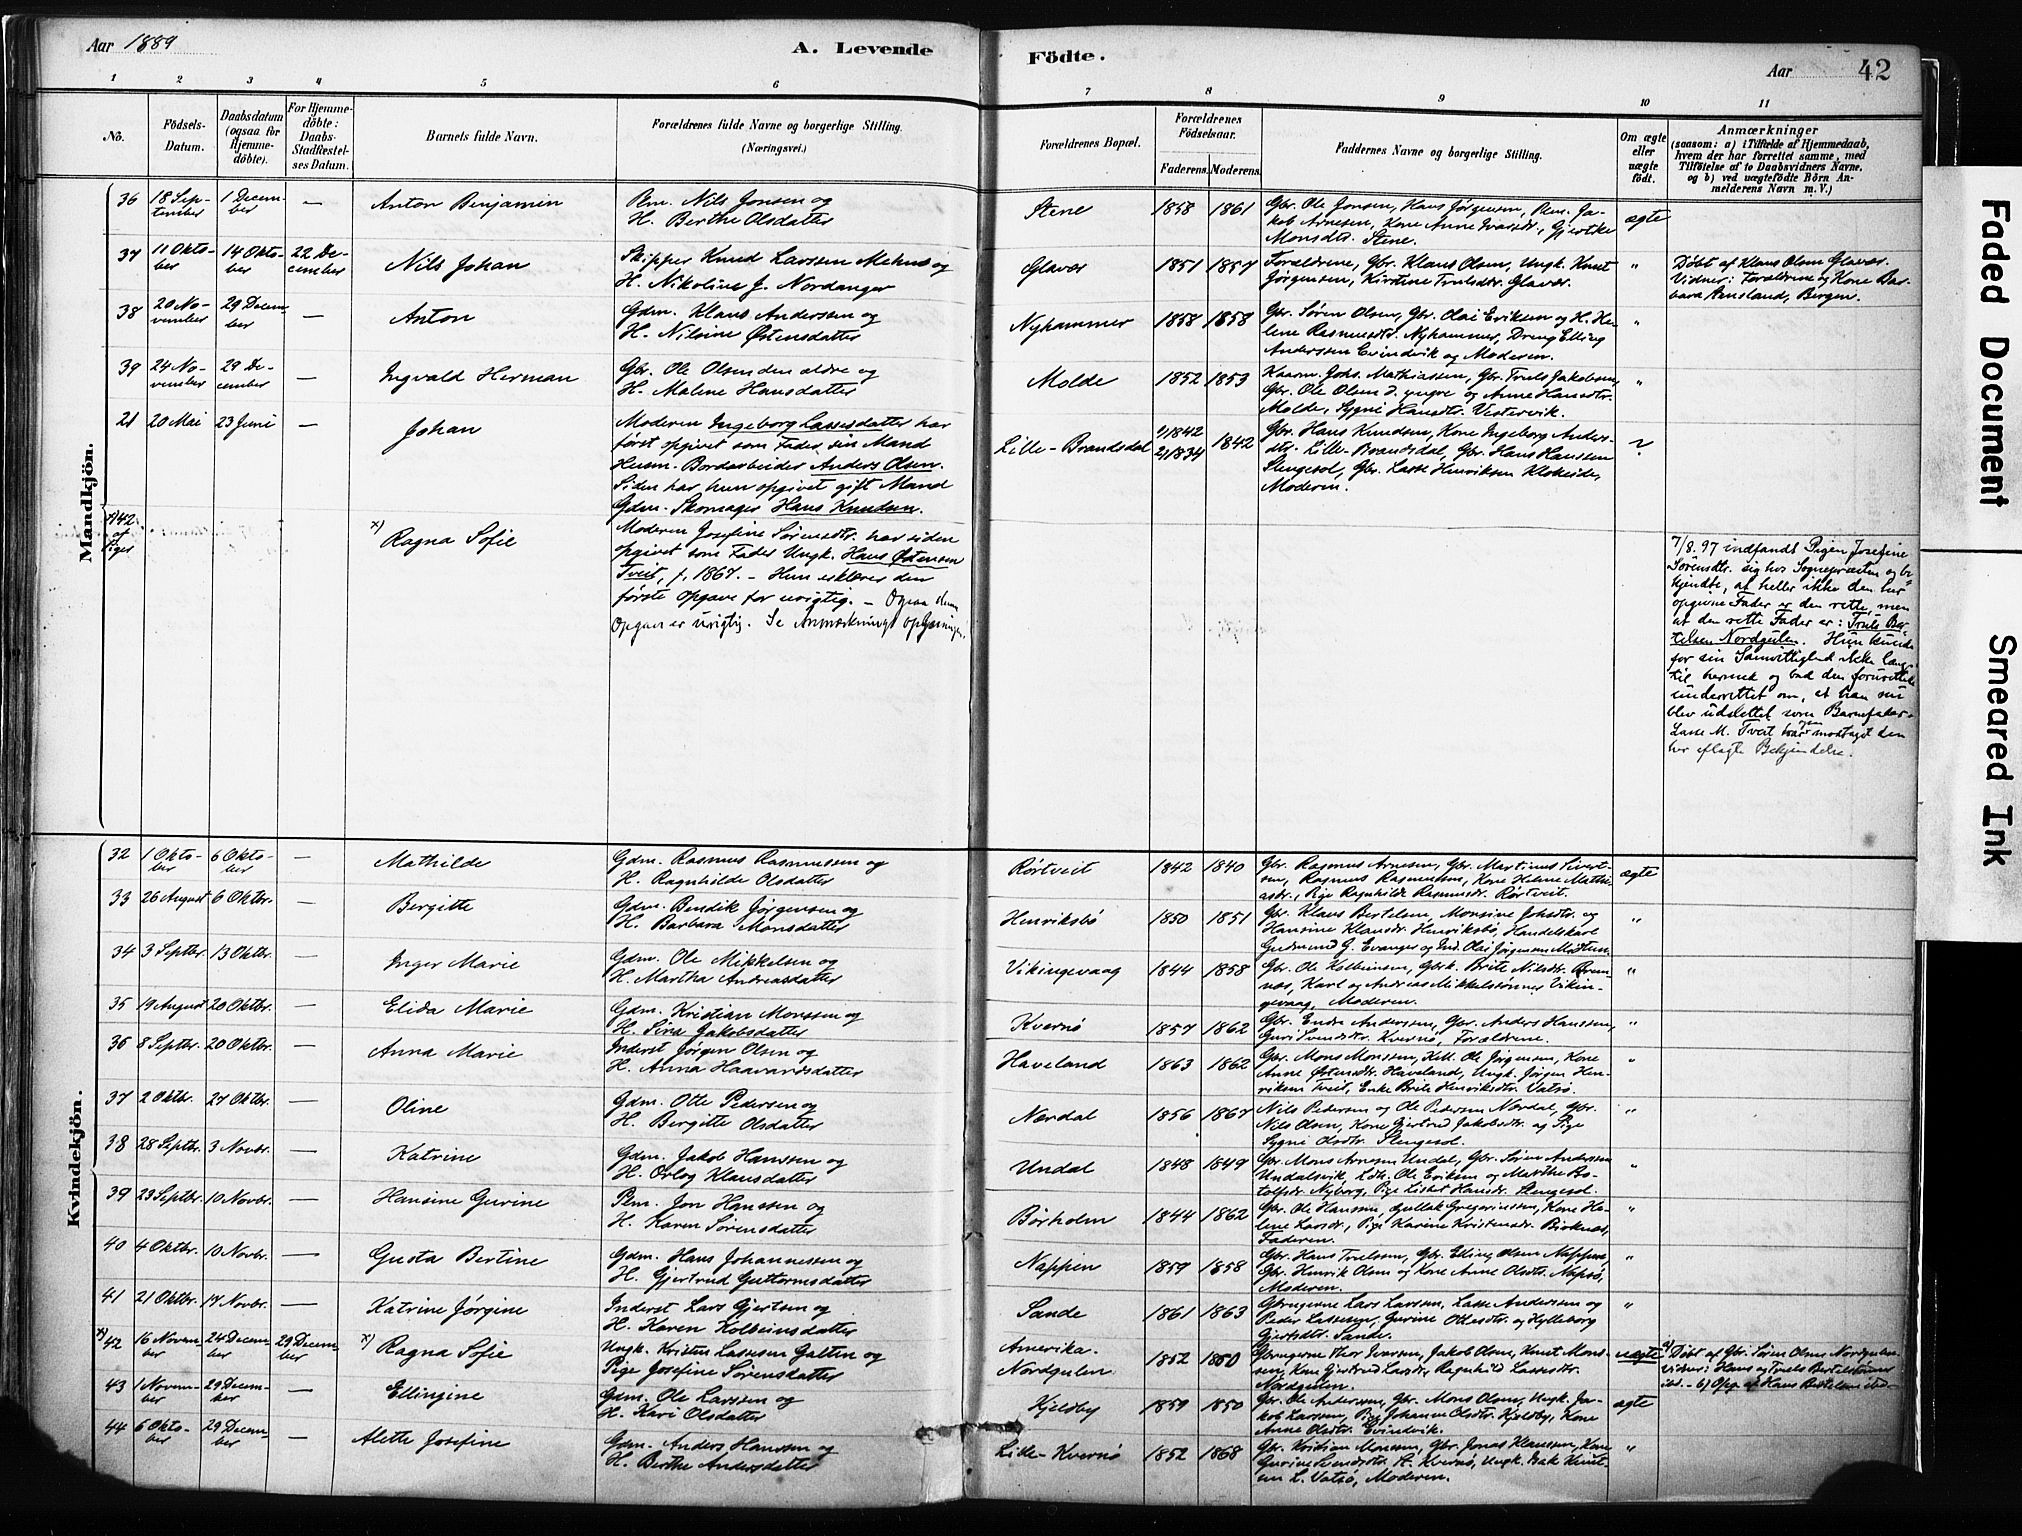 Aar 1889
A. Levende
Födte.
Aar
42
1 2 3 4 5 6 7 8 9 10 11
No.
Födsels-
Datum.
Daabsdatum
(ogsaa for
Hjemme-
döbte).
For Hjemme-
döbte:
Daabs-
Stadfæstel-
ses Datum.
Barnets fulde Navn.
Forældrenes fulde Navne og borgerlige Stilling.
(Næringsvei.)
Forældrenes Bopæl.
Forældrenes
Födselsaar.
Faderens. Moderens.
Faddernes Navne og borgerlige Stilling.
Om ægte
eller
uægte
födt.
Anmærkninger
(saasom: a) i Tilfælde af Hjemmedaab,
hvem der har forrettet samme, med
Tilföielse af to Daabsvidners Navne,
og b) ved uægtefödte Börn An-
melderens Navn m. V.)
Mandkjön.
36 18 Sep-
tember 1 Decem-
ber — Anton Benjamin Nils Jonsen og
H. Berthe Olsdatter Stene 1858 1861 Gbr. Ole Jonsen, Hans Jørgensen, Ja-
kob Arnesen, Kone Anne Ivarsdr.,
Monsdtr. Stene. ægte
37 11 Okto-
ber 14 Okto-
ber 22 De-
cember Nils Johan Skipper Knud Larssen Mehus og
H. Nikoline J. Nordanger Glavær 1851 1857 Forældrene, Gbr. Klaus Olsen, Ungk. Knut
Jørgensen, Kirstine Trulsdtr. Glavær. " Döbt af Klaus Olsen Glavær.
Vidner: Forældrene og Kone Bar-
bara Aensland, Bergen.
38 20 No-
vember 29 Decem-
ber — Anton Gdm. Klaus Anderssen og
H. Nilsine Østensdatter Nyhammer 1858 1858 Gbr. Søren Olsen, Gbr. Olai Eriksen og H. He-
lene Rasmusdtr. Nyhammer, Dreng Elling
Anderssen Evindvik og Moderen. "
39 24 No-
vember 29 De-
cember — Ingvald Herman Gbr. Ole Olsen den ældre og
H. Malene Hansdatter Molde 1852 1853 Johs. Mathiassen, Gbr. Truls Jakobsen,
Gbr. Ole Olsen d. yngre og Anne Hansdtr.
Molde, Sygni Hansdtr. Vestervik. "
21 20 Mai 23 Juni — Johan Moderen Ingeborg Lassesdatter har
først opgivet som Fader sin Mand
Husm. Bordarbeider Anders Olsen.
Siden har hun opgivet gift Mand
Gdm. Skomager Hans Knudsen. Lille-Brandsdal 1) 1842
2) 1834 1842 Gbr. Hans Knudsen, Kone Ingeborg Anders-
dtr. Lille-Brandsdal, Gbr. Hans Hanssen
Slengesol, Gbr. Lasse Henriksen Klokeide,
Moderen. ?
x) 42
af
Piger x) Ragna Sofie Moderen Josefine Sørensdtr. har siden
opgivet som Fader Ungk. Hans Østensen
Tveit, f. 1867. — Hun erklærer den
første opgave for urigtig. — Ogsaa denne
Opgave er urigtig. Se
7/8. 97 indfandt Pigen Josefine
Sørensdtr. sig hos Sognepræsten og be-
kjendte, at heller ikke den her
opgivne Fader er den rette, men
at den rette Fader er: Truls Ber-
telsen Nordgulen. Hun kunde
for sin Samvittighed ikke
til herunder og bad den
underrettet om, at han nu
blev udslettet som Barnefader.
Lasse M. Tveit har modtaget den
her aflagte Bekjendelse.
Kvindekjön.
32 1 Okto-
ber 6 Okto-
ber — Mathilde Gdm. Rasmus Rasmussen og
H. Ragnhilde Olsdatter Rørtveit 1842 1840 Gbr. Rasmus Arnesen, Gbr. Martinus Sivert-
sen, Rasmus Rasmussen, Kone Helene Mathi-
asdr., Pige Ragnhilde Rasmusdr. Rørtveit. ægte
33 26 August 6 Oktbr. — Bergitte Gdm. Bendik Jørgensen og
H. Barbara Monsdatter Henriksbø 1850 1851 Gbr. Klaus Bertelsen, Monsine Johsdtr. og
Hansine Klausdr. Henriksbø, Handelskarl
Gudmund G. Evanger og Ind. Olai Jørgensen Midttun. "
34 3 Septbr. 13 Oktbr. — Inger Marie Gdm. Ole Mikkelsen og
H. Martha Andreasdatter Vikingevaag 1844 1858 Gbr. Ole Kolbeinsen, Gbrk. Brite Nilsdtr. Brem-
næs, Karl og Andreas Mikkelsønner Vikin-
gevaag, Moderen. "
35 19 August 20 Oktbr. — Elida Marie Gdm. Kristian Monssen og
H. Sina Jakobsdatter Kvernø 1857 1862 Gbr. Endre Anderssen, Gbr. Anders Hanssen,
Guri Svendsdtr. Kvernø, Forældrene. "
36 8 Septbr. 20 Oktbr. — Anna Marie Inderst Jørgen Olsen og
H. Anna Haavardsdatter Haveland 1863 1862 Gbr. Mons Monssen, Ole Jørgensen, Kone
Anne Østensdtr. Haveland, Ungk. Jørgen Hen-
riksen Tveit, Enke Brite Henriksdtr. Vatsø. "
37 2 Oktbr. 27 Oktbr. — Oline Gdm. Otte Pedersen og
H. Bergitte Olsdatter Nordal 1856 1867 Nils Pedersen og Ole Pedersen Nordal, Gbr.
Nils Olsen, Kone Gjertrud Jakobsdtr. og Pige
Sygni Olsdtr. Slengesol. "
38 28 Septbr. 3 Novbr. — Katrine Gdm. Jakob Hanssen og
H. Orlog Klausdatter Undal 1848 1849 Gbr. Mons Arnesen Undal, Gbr. Søren Anderssen
Undalsvik, Ole Eriksen og Marthe Bo-
tolfsdr. Nyborg, Pige Lisbet Hansdr. Slengesol. "
39 23 Septbr. 10 Novbr. — Hansine Gurine Jon Hanssen og
H. Karen Sørensdatter Børholm 1844 1862 Gbr. Ole Hanssen, Gullak Gregoriussen, Kone He-
lene Larsdr., Pige Karine Kristensdr. Birknæs,
Faderen. "
40 4 Oktbr. 10 Novbr. — Gusta Bertine Gdm. Hans Johannessen og
H. Gjertrud Guttormsdatter Nappen 1859 1858 Gbr. Hans Trulssen, Gbr. Elling Olsen Nappen,
Gbr. Henrik Olsen og Kone Anne Olsdtr. Napsø,
Moderen. "
41 21 Oktbr. 17 Novbr. — Katrine Jørgine Inderst Lars Gjertsen og
H. Karen Kolbeinsdatter Sande 1861 1863 Gbrugerne Lars Larssen, Lasse Anderssen og
Peder Lassesen, Gurine Ottesdtr. og Hylleborg
Gjertsdtr. Sande. "
x) 42 16 Novem-
ber 24 Decem-
ber 29 Decem-
ber x) Ragna Sofie Ungk. Kristen Lassesen Galten og
Pige Josefine Sørensdatter Amerika.
Nordgulen. 1852 1860 Gbrugerne Thor Iversen, Jakob Olsen, Knut Mons-
sen, Kone Gjertrud Larsdtr, Ragnhild Lassesdtr.
Nordgulen. uægte a) Döbt af Gbr. Søren Olsen Nordgulen.
Vidner: Hans og Truls Bertelsønner
ibd. — b) Opg. af Hans Bertelsen ibd.
43 1 Novem-
ber 29 Decem-
ber — Ellingine Gdm. Ole Larssen og
H. Kari Olsdatter Kjeldby 1859 1850 Gbr. Ole Anderssen, Gbr. Mons Olsen, Ungk. Ja-
kob Larssen, Pige Johanne Olsdtr. Kjeldby, Kone
Anne Olsdtr. Evindvik. ægte
44 6 Okto-
ber 29 Decem-
ber — Alette Josefine Gdm. Anders Hanssen og
H. Berthe Andersdatter Lille-Kvernø 1852 1868 Gbr. Kristian Monssen, Gbr. Jonas Klaussen, Kone
Gurine Svendsdtr. St. Kvernø, Ungk. Isak Knut-
sen L. Vatsø, Moderen. "
Faded Document
Smeared Ink